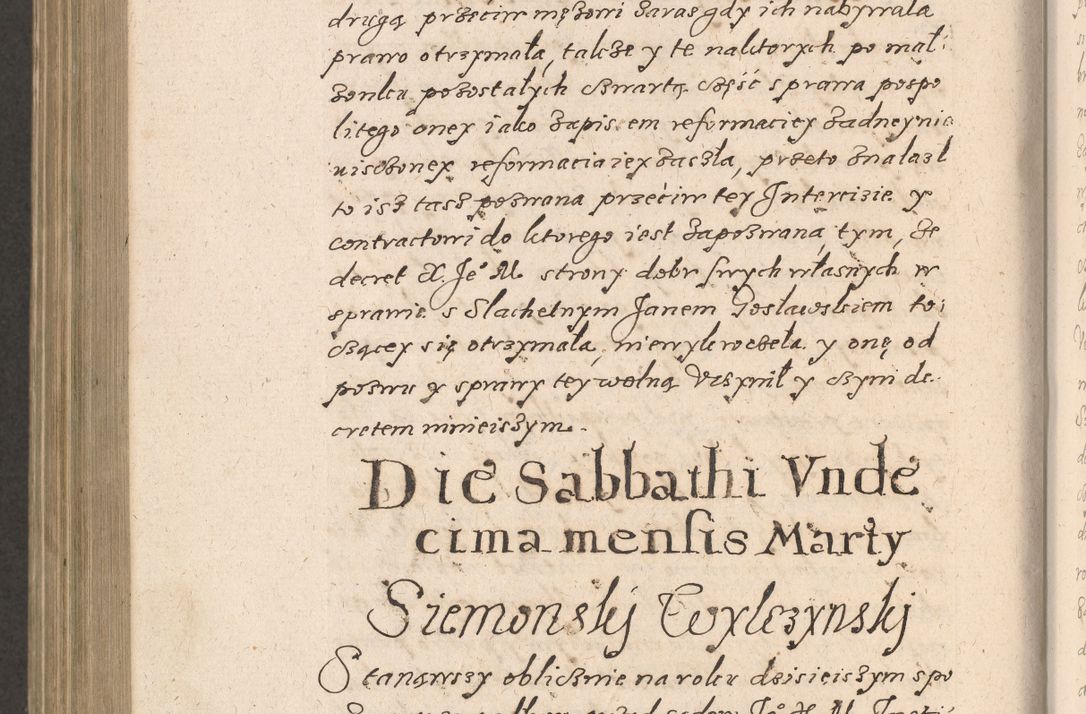 drugą przeciw mężowi zaras gdy ich nabywała
prawo otrzymała, takze y te na ktorych po mał:
zonku pozostałych czwartą część s prawa pospo
litego oney iako zapis em reformaciey zadney nie
uiszczoney reformacia iey zaszła, przeto znalazl
to isz tasz pozwana przeciw tey Intercizie y
contractowi do ktorego iest zapozwana, tym, że
decret X. Je° M. strony dobr swych własnych w
sprawie s Slachetnym Janem Gosławskiem to:
czącey się otrzymała, y onę od
pozwu y sprawy tey wolną Vczynił y czym de
cretem ninieiszym.
Die Sabbathi Vnde
cima mensis Marty
Siemonskij
Stanąwszy oblicznie na roku dzisieiszym spo